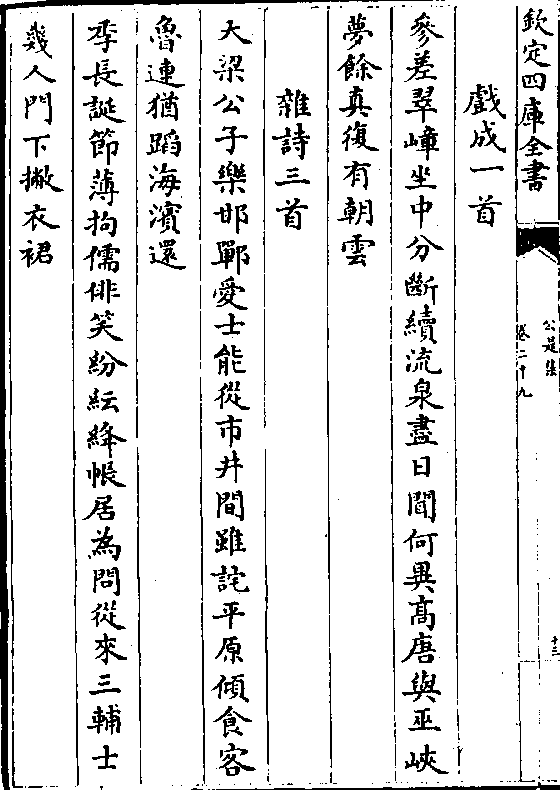 欽定四庫全書
公是集
卷二十九
十三
戲成一首
參差翠嶂坐中分斷續流泉盡日聞何異髙唐與巫峽
夢餘真復有朝雲
雜詩三首
大梁公子樂邯鄲愛士能從市井間雖詫平原傾食客
魯連猶蹈海濱還
季長誕節薄拘儒俳笑紛紜絳帳居為問從來三輔士
幾人門下撇衣裙